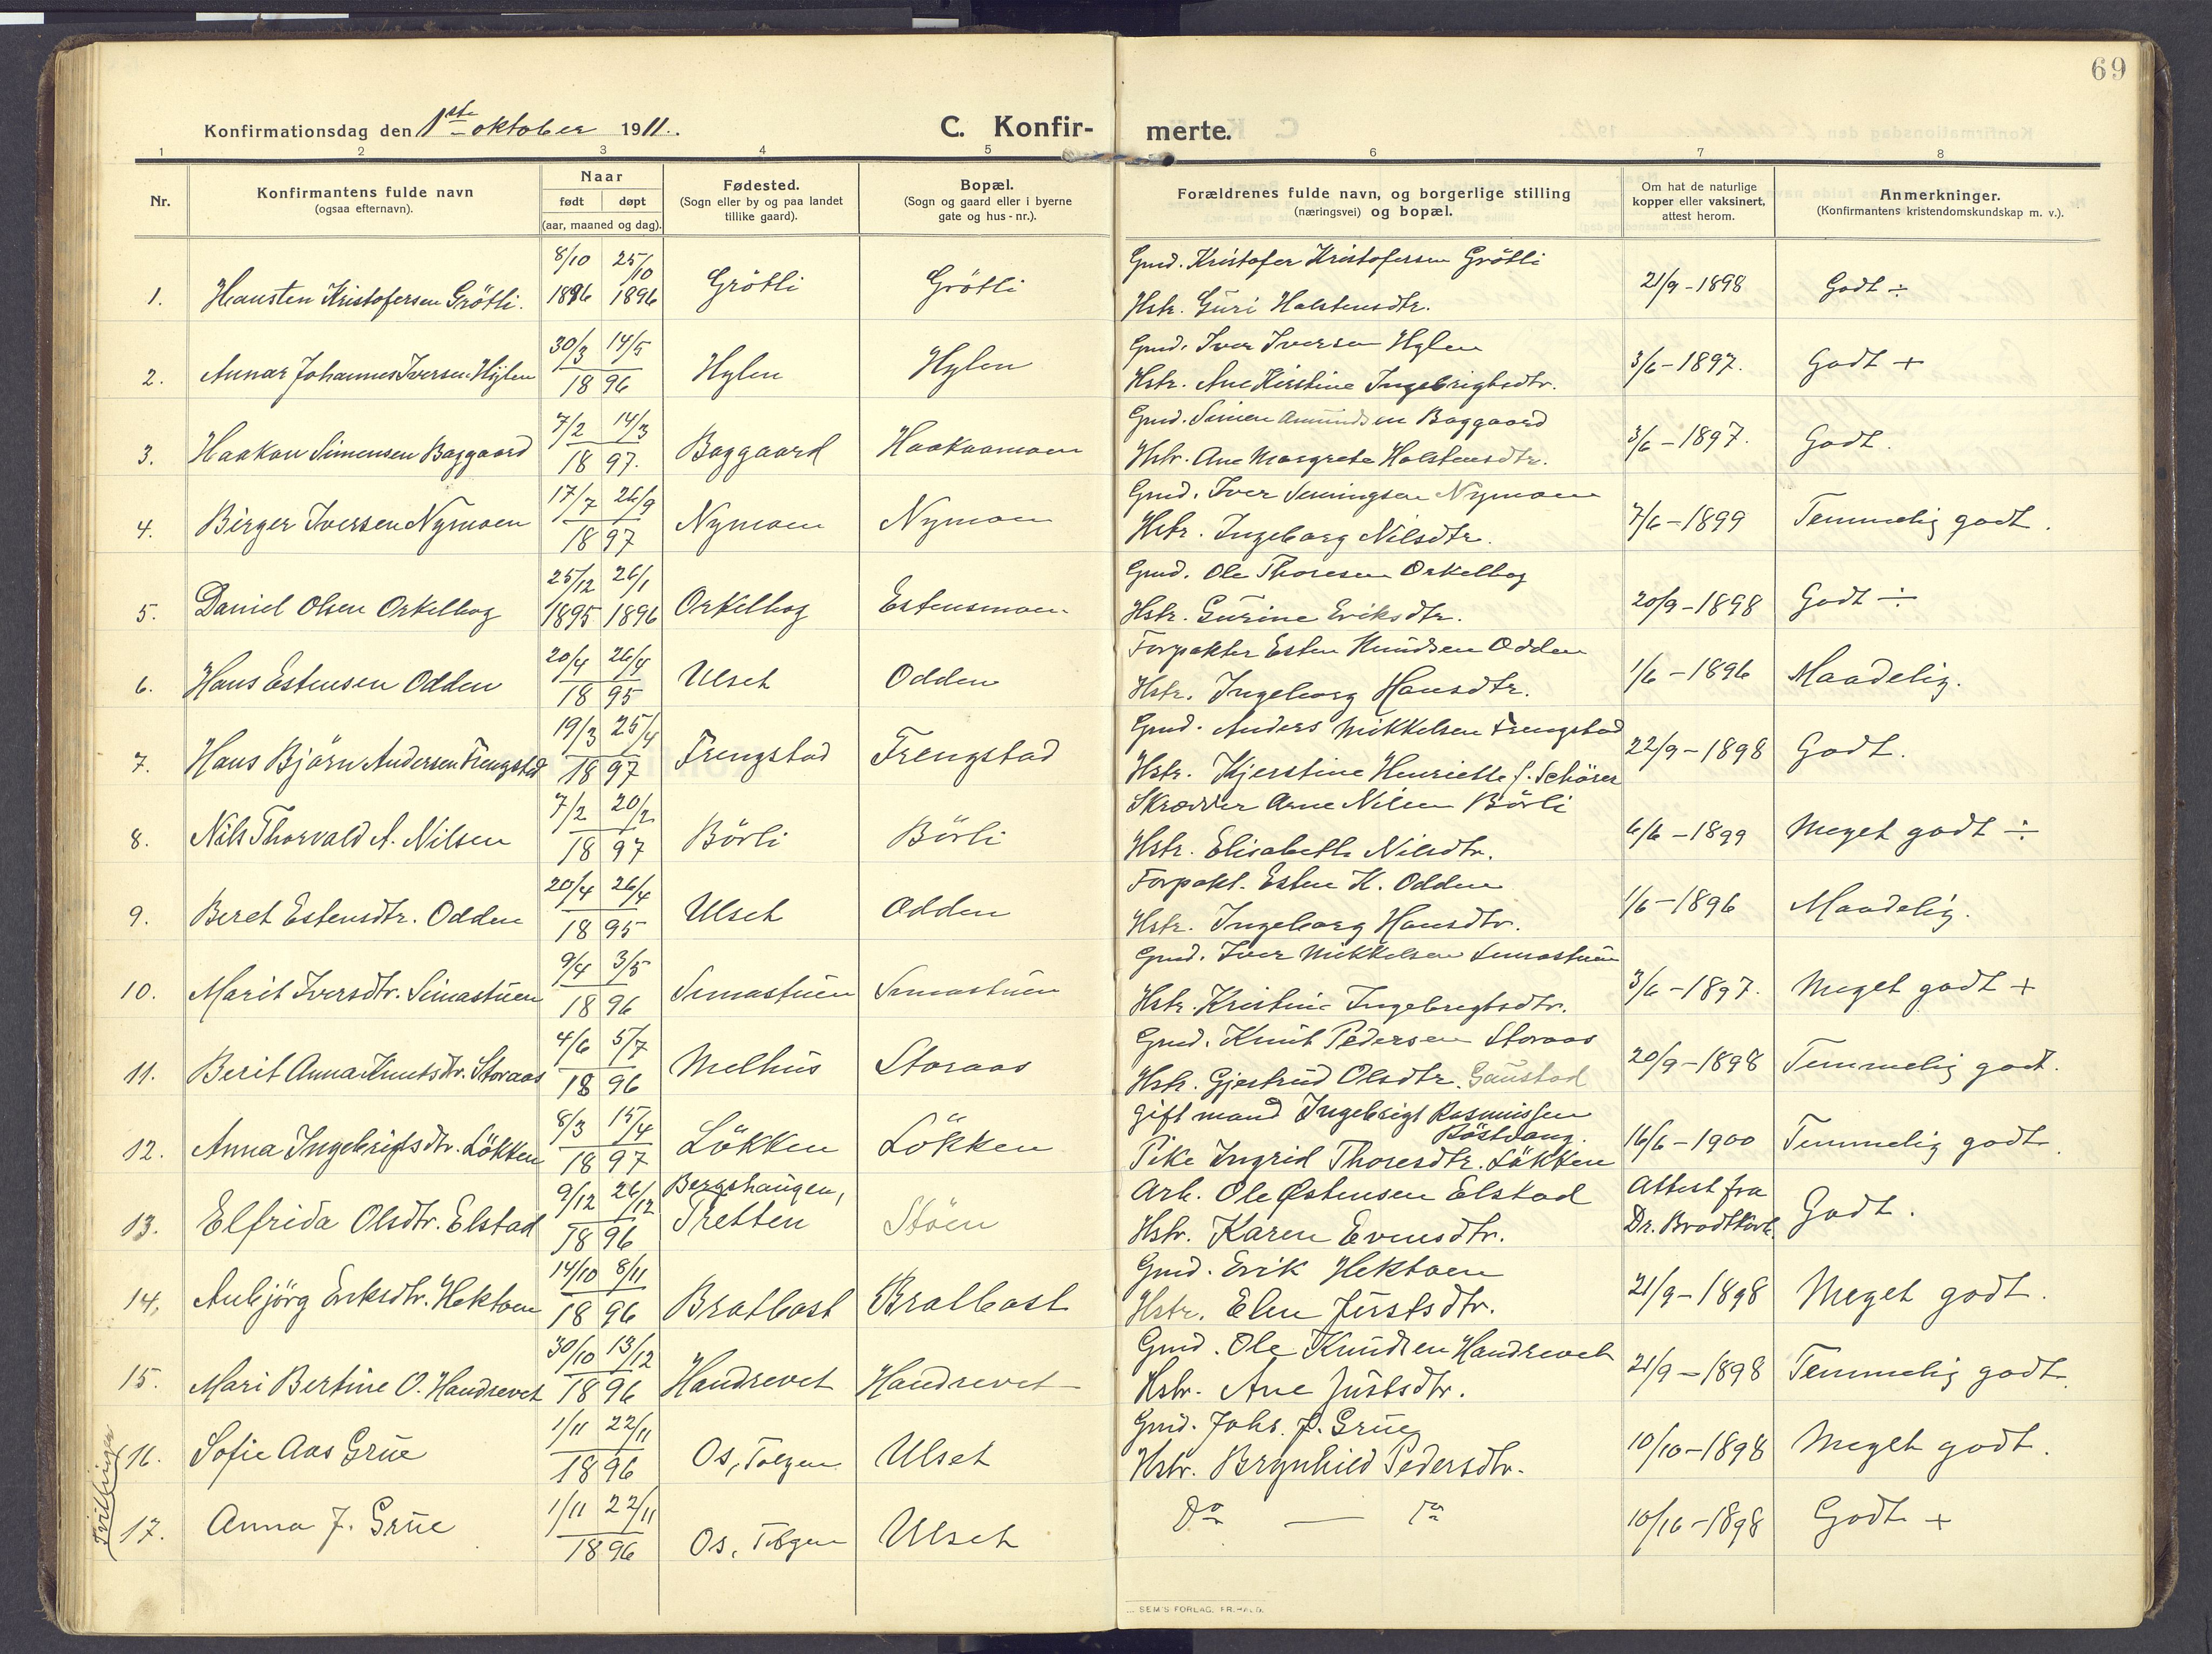 69
Konfirmationsdag den 1ste oktober 1911.
C. Konfir-
merte.
1 2 3 4 5 6 7 8
Nr.
Konfirmantens fulde navn
(ogsaa efternavn).
Naar
født døpt
(aar, maaned og dag).
Fødested.
(Sogn eller by og paa landet
tillike gaard).
Bopæl.
(Sogn og gaard eller i byerne
gate og hus-nr.).
Forældrenes fulde navn, og borgerlige stilling
(næringsvei) og bopæl.
Om hat de naturlige
kopper eller vaksinert,
attest herom.
Anmerkninger.
(Konfirmantens kristendomskundskap m. v.).
8/10 25/10
Gmd. Kristofer Kristofersen Grötli
1. Hausten Kristofersen Grötli. 1896 1896 Grötli Grötli 21/9-1898 Godt ÷
Hstr. Guri Halstensdtr.
30/3 14/5
Gmd. Iver Iversen Hylen
2. Annar Johannes Iversen Hylen 1896 Hylen Hylen 3/6-1897. Godt +
Hstr. Ane Kirstine Ingebrigtsdtr.
7/2 14/3
Gmd. Simen Amundsen Baggaard
3. Haakon Simensen Baggaard 1897. Baggaard Haakaamoen 3/6-1897. Godt.
Hstr. Ane Margrete Halstensdtr.
17/7 26/9
Gmd. Iver Nymoen
4. Birger Iversen Nymoen 1897 Nymoen Nymoen 7/6-1899 Temmelig godt.
Hstr. Ingeborg Nilsdtr.
25/12 26/1
Gmd. Ole Thoresen Orkelbog
5. Daniel Olsen Orkelbog 1895 1896 Orkelbog Estensmoen 20/9-1898 Godt ÷
Hstr. Gurine Eriksdtr.
20/4 26/4
Forpakter Esten Knudsen Odden
6. Hans Estensen Odden 1895 Ulset Odden 1/6-1896 Maadelig.
Hstr. Ingeborg Hansdtr.
19/3 25/4
Gmd. Anders Mikkelsen Frengstad
7. Hans Björn Andersen Frengstad 1897 Frengstad Frengstad 22/9-1898 Godt.
Hstr. Kjerstine Henriette f. Schörer
7/2 20/2
Skrædder Arne Nilsen Börli
8. Nils Thorvald A. Nilsen 1897 Börli Börli 6/6-1899 Meget godt ÷
Hstr. Elisabeth Nilsdtr.
20/4 26/4
Forpakt. Esten K. Odden
9. Beret Estensdtr. Odden 1895 Ulset Odden 1/6-1896 Maadelig.
Hstr. Ingeborg Hansdtr.
9/4 3/5
Gmd. Iver Mikkelsen Simastuen
10. Marit Iversdtr. Simastuen 1896 Simastuen Simastuen 3/6-1897. Meget godt +
Hstr. Kristine Ingebrigtsdtr.
4/6 5/7
Gmd. Knut Pedersen Storaas
11. Berit Anna Knutsdtr. Storaas 1896 Melhus Storaas 20/9-1898 Temmelig godt.
Hstr. Gjertrud Olsdtr. Gaustad
8/3 15/4
Gift mand Ingebrigt Rasmussen
12. Anna Ingebrigtsdtr. Lökken 1897 Lökken Lökken 16/6-1900 Temmelig godt.
Pike Ingrid Thoresdtr. Lökken
9/12 26/12 Bergshaugen,
Arb. Ole Østensen Elstad
Attest fra
13. Elfrida Olsdtr. Elstad 1896 Tretten Stöen Dr. Brodtkorb. Godt.
Hstr. Karen Evensdtr.
14/10 8/11
Gmd. Erik Hektoen
14. Anbjörg Eriksdtr. Hektoen 1896 Bratbost Bratbost 21/9-1898 Meget godt.
Hstr. Elen Justsdtr.
30/10 13/12
Gmd. Ole Knudsen Haudrevet
15. Mari Bertine O. Haudrevet 1896 Haudrevet Haudrevet 21/9-1898 Temmelig godt.
Hstr. Ane Justsdtr.
1/11 22/11
Gmd. Johs. P. Grue
Tvillinger
16. Sofie Aas Grue 1896 Os, Tolgen Ulset 10/10-1898 Meget godt.
Hstr. Brynhild Pedersdtr.
1/11 22/11
Do — do
17. Anna J. Grue 1896 Os, Tolgen Ulset 10/10-1898 Godt +
SEM'S FORLAG, FR.HALD.